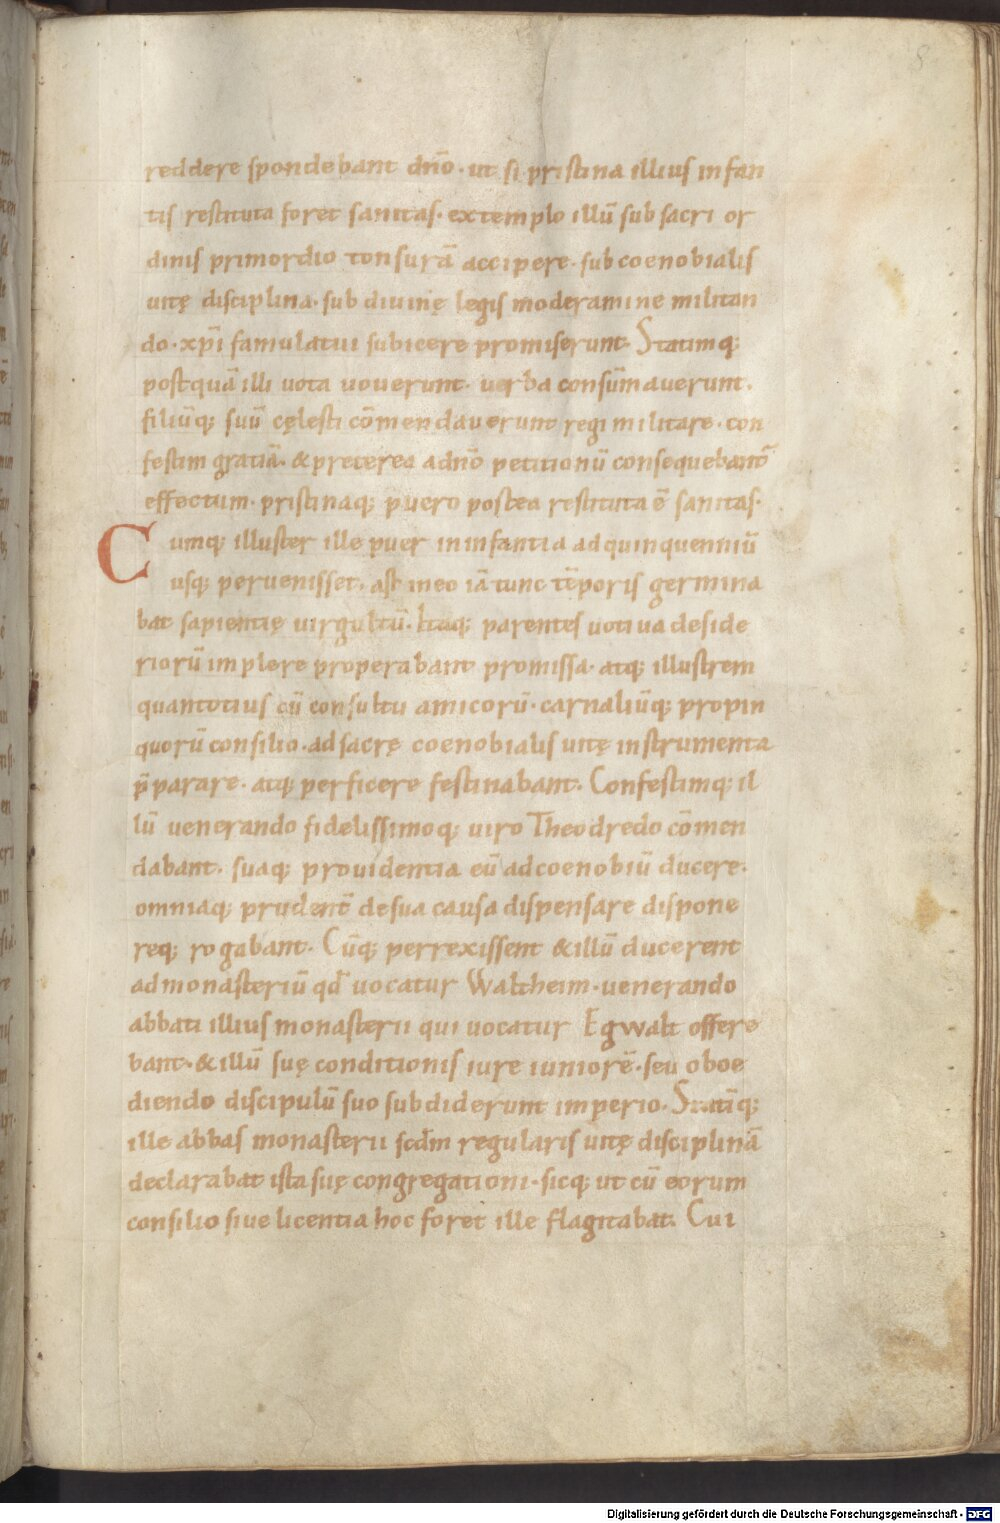 8
reddere spondebant dnō · ut si pristina illius infan
tis restituta foret sanitas · extemplo illū sub sacri or
dinis primordio tonsurā accipere · sub coenobialis
uitę disciplina · sub diuinę legis moderamine militan
do · xp̄i famulatui subicere promiserunt · Statimq;
postquā illi uota uouerunt · uerba consūmauerunt ·
filiūq; suū cęlesti cōmendauerunt regi militare · con
festim gratiā · & preterea adnō petitionū consequebant̄
effectum · pristinaq; puero postea restituta ē sanitas ·
Cumq; illuster ille puer in infantia ad quinquenniū
usq; peruenisset · ast in eo iā tunc tēporis germina
bat sapientię uirgultū · Itaq; parentes uotiua deside
riorū implere properabant promissa · atq; illustrem
quantotius cū consultu amicorū · carnaliūq; propin
quorū consilio · ad sacrę coenobialis uitę instrumenta
p̄parare · atq; perficere festinabant · Confestimq; il
lū uenerando fidelissimoq; uiro Theodredo cōmen
dabant · suaq; prouidentia eū ad coenobiū ducere ·
omniaq; prudent̄ de sua causa dispensare dispone
req; rogabant · Cūq; perrexissent & illū ducerent
ad monasteriū qd̄ uocatur Waltheim · uenerando
abbati illius monasterii qui uocatur Egwalt offere
bant · & illū suę conditionis iure iuniorē · seu oboe
diendo discipulū suo subdiderunt imperio · Statīq;
ille abbas monasterii scd̄m regularis uitę disciplinā
declarabat ista suę congregationi · sicq; ut cū eorum
consilio siue licentia hoc foret ille flagitabat. Cui
Digitalisierung gefördert durch die Deutsche Forschungsgemeinschaft - DFG